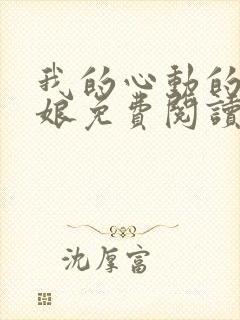 我的心動的
娘免費閱讀
沈厚富